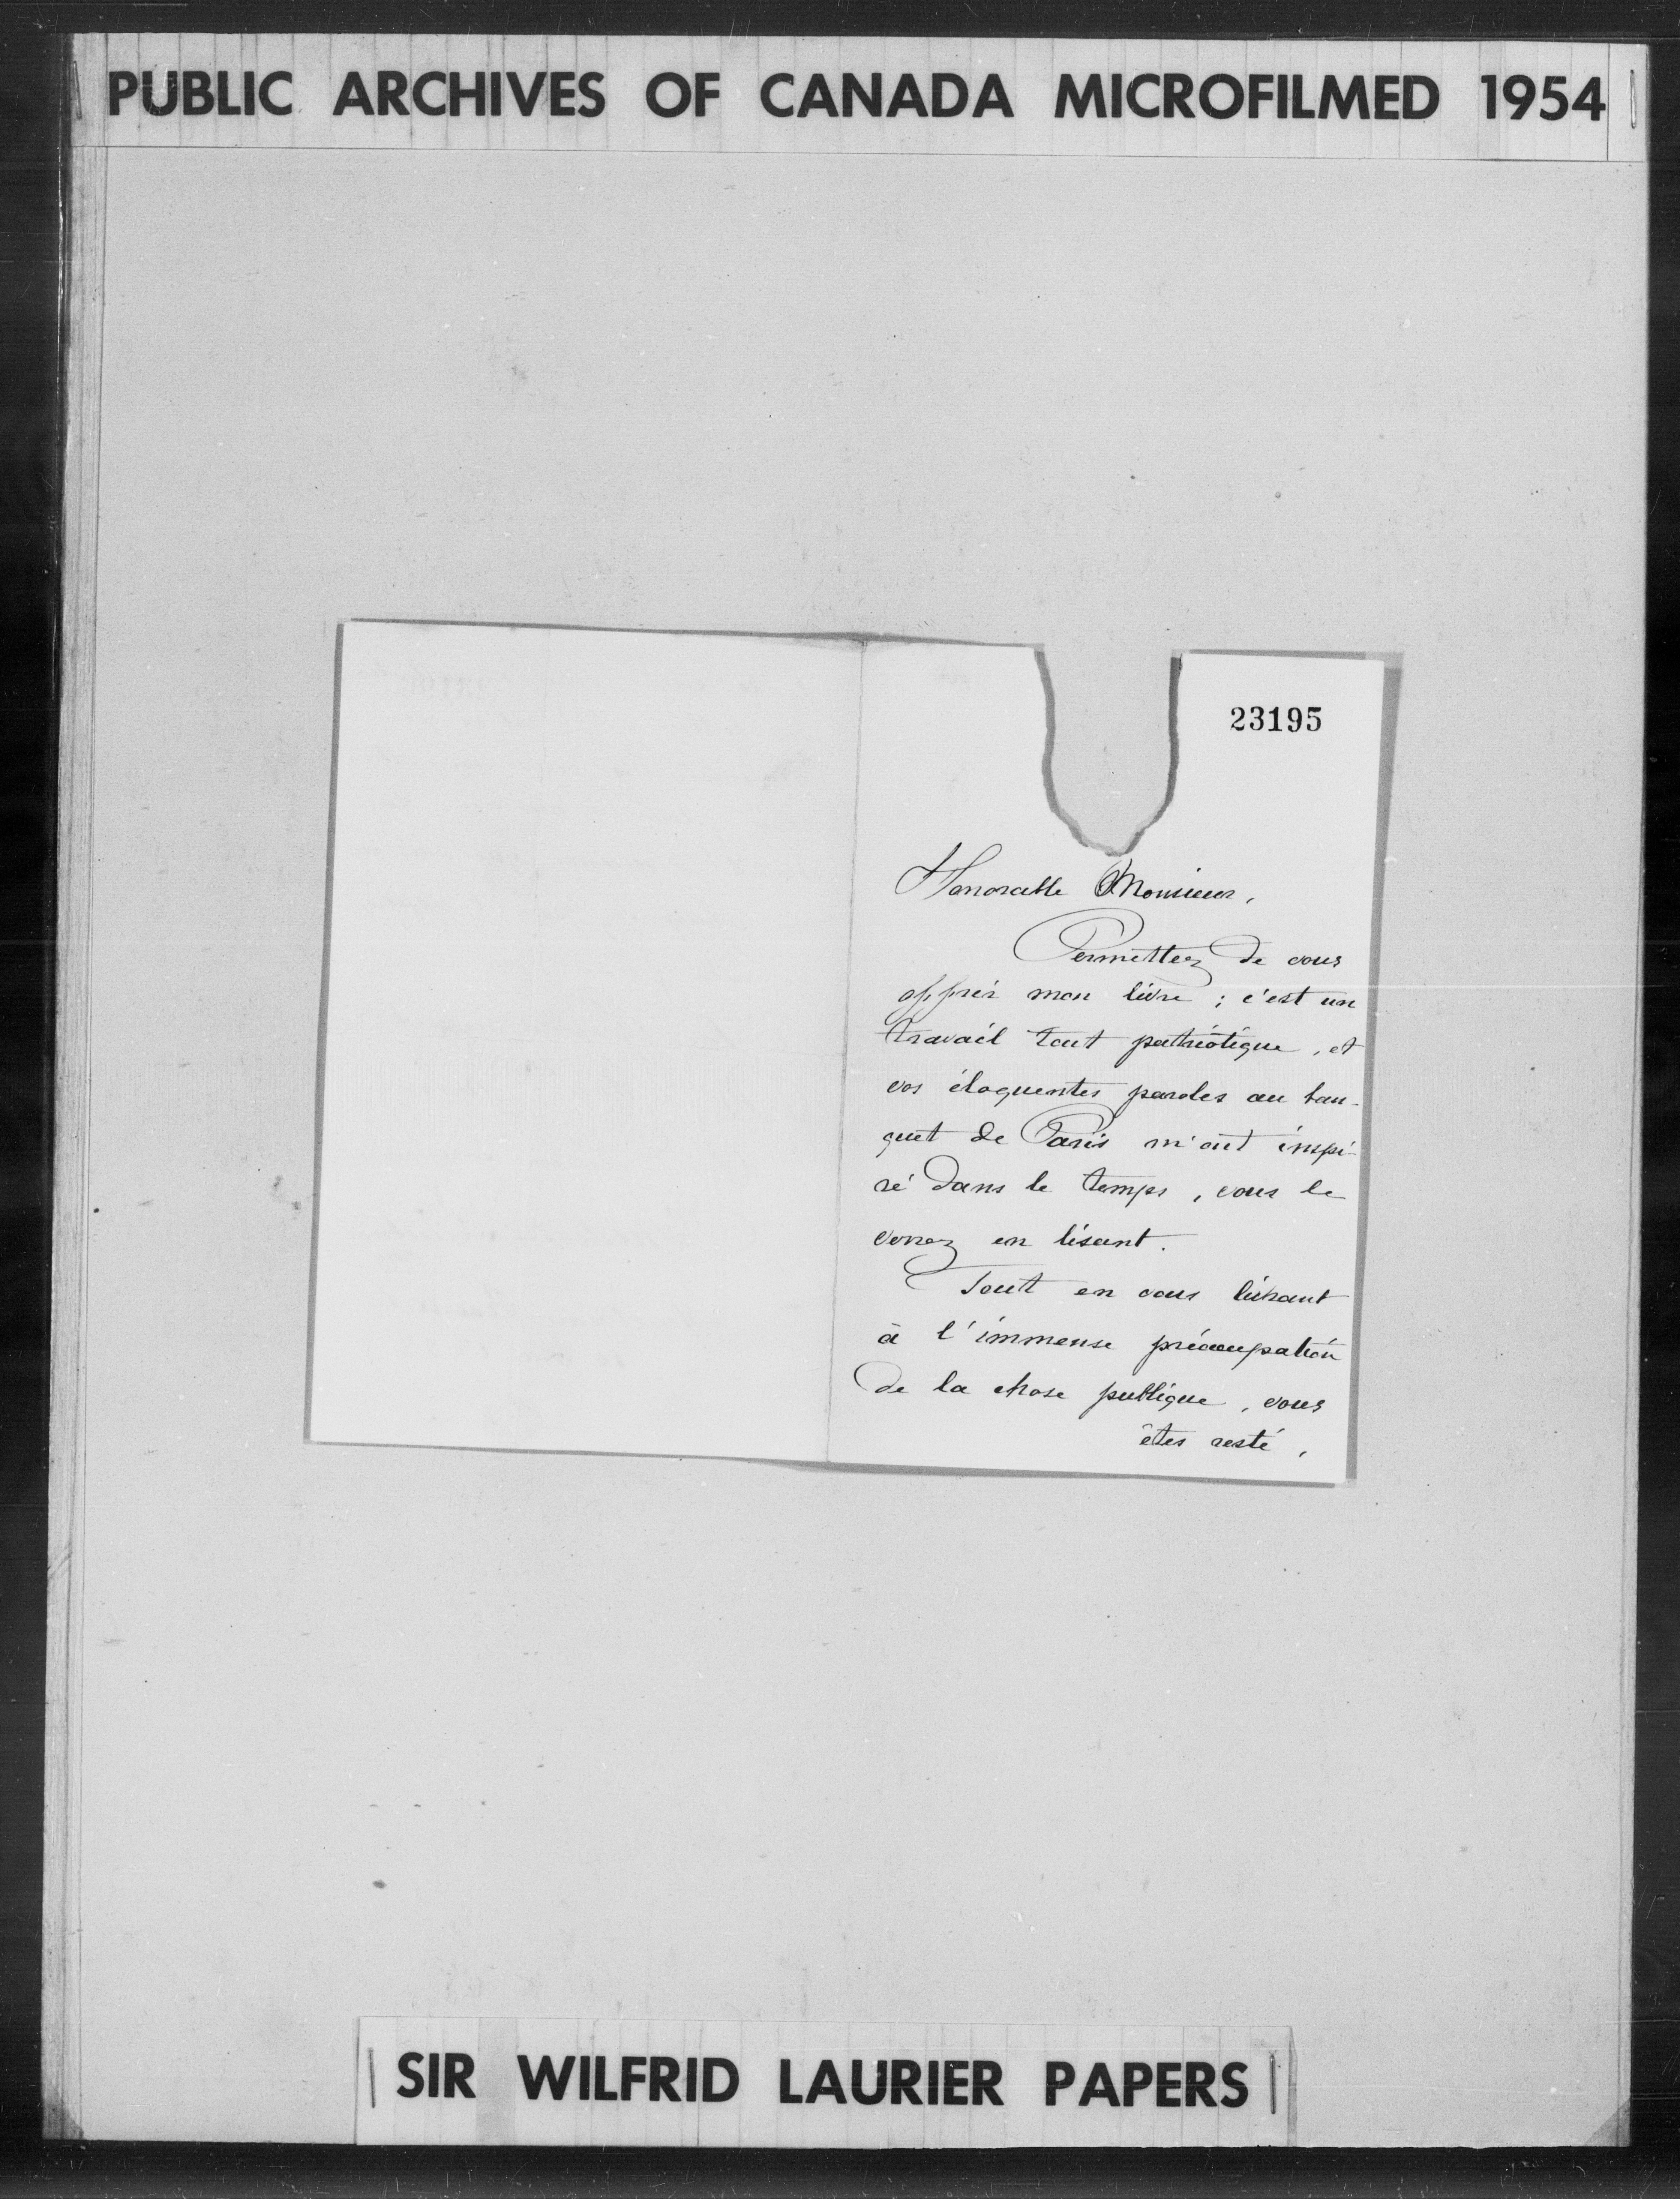 PUBLIC ARCHIVES OF CANADA MICROFILMED 1954
23195
Honorable Monsieur,
Permettez de vous
offrir mon livre ; c'est un
travail tout patriotique, et
vos éloquentes paroles au ban-
quet de Paris m'ont inspi-
ré dans le temps, vous le
verrez en lisant.
Tout en vous livrant
à l'immense préocupation
de la chose publique, vous
êtes resté,
SIR WILFRID LAURIER PAPERS